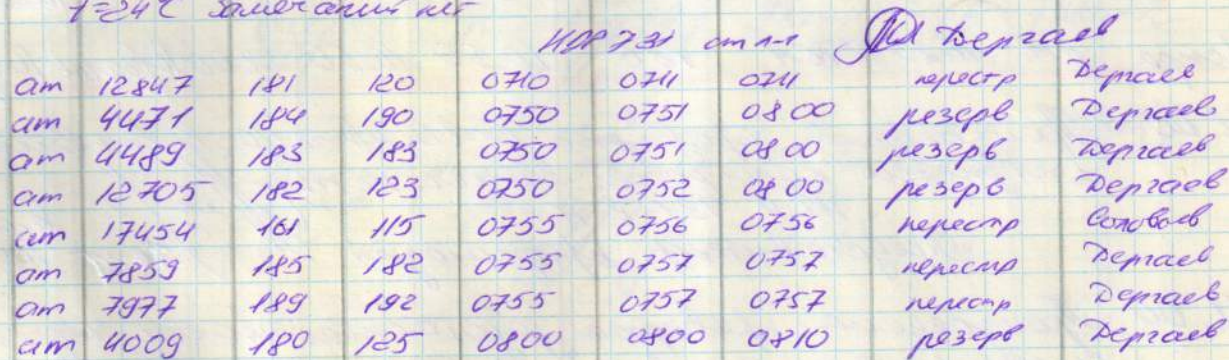 t=24С замечаний нет
НДР 731 ст л-т Дергаев
ст 12847 181 120 0710 0711 0711 перестр Дергаев
ст 4471 184 190 0750 0751 0800 резерв Дергаев
ст 4489 183 183 0750 0751 0800 резерв Дергаев
ст 12705 182 123 0750 0752 0800 резерв Дергаев
ст 17454 161 115 0755 0756 0756 перестр Соловьев
ст 7859 185 182 0755 0757 0757 перестр Дергаев
ст 7977 189 192 0755 0757 0757 перестр Дергаев
ст 4009 180 125 0800 0800 0810 резерв Дергаев